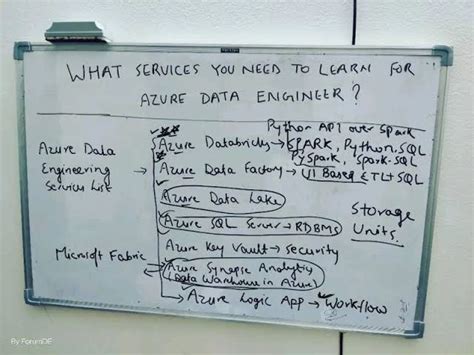 WHAT SERVICES YOU NEED TO LEARN FOR
AZURE DATA ENGINEER?
Python API over Spark
Azure Databricks → SPARK, Python, SQL
PySpark, Spark-SQL
Azure Data
Engineering
Services List
Azure Data Factory → UI Based ETL+SQL
Azure Data Lake
Azure SQL Server → RDBMS
Storage
Units.
Azure Key Vault → Security
Microsoft Fabric
Azure Synapse Analytics
(Data Warehouse in Azure)
Azure Logic App → Workflow
By ForumDE